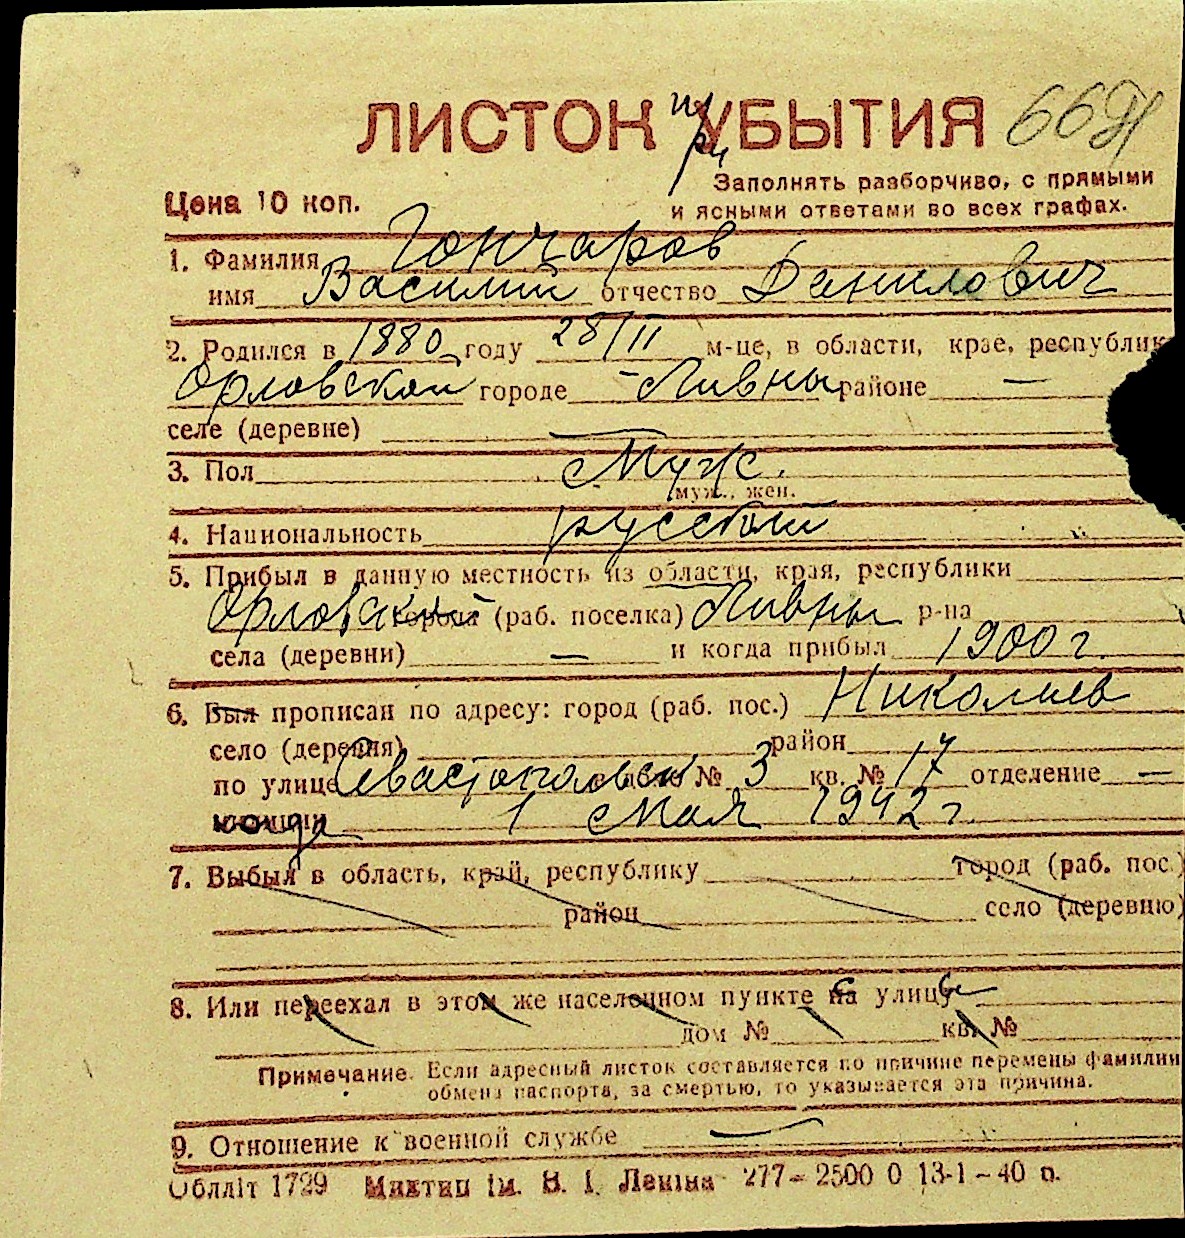 ЛИСТОК при УБЫТИЯ
Цена 10 коп.
Заполнять разборчиво, с прямыми
и ясными ответами во всех графах.
1. Фамилия Гончаров
имя Василий отчество Данилович
2. Родился в 1880 году 28/II м-це, в области, крае, республик
Орловской городе Ливны районе —
селе (деревне) —
3. Пол Муж.
муж., жен.
4. Национальность русский
5. Прибыл в данную местность из области, края, республики
Орловской города (раб. поселка) Ливны р-на
села (деревни) — и когда прибыл 1900 г.
6. Был прописан по адресу: город (раб. пос.) Николаев
село (деревня) район
по улице Севастопольск дом № 3 кв. № 17 отделение —
когда 1 Мая 1942 г.
7. Выбыл в область, край, республику город (раб. пос.)
район село (деревню)
8. Или переехал в этом же населенном пункте на улицу
дом № кв. №
Примечание. Если адресный листок составляется по причине перемены фамилии
обмена паспорта, за смертью, то указывается эта причина.
9. Отношение к военной службе —
Обллiт 1729 iм. В. I. Ленiна 277–2500 0 13-1–40 р.